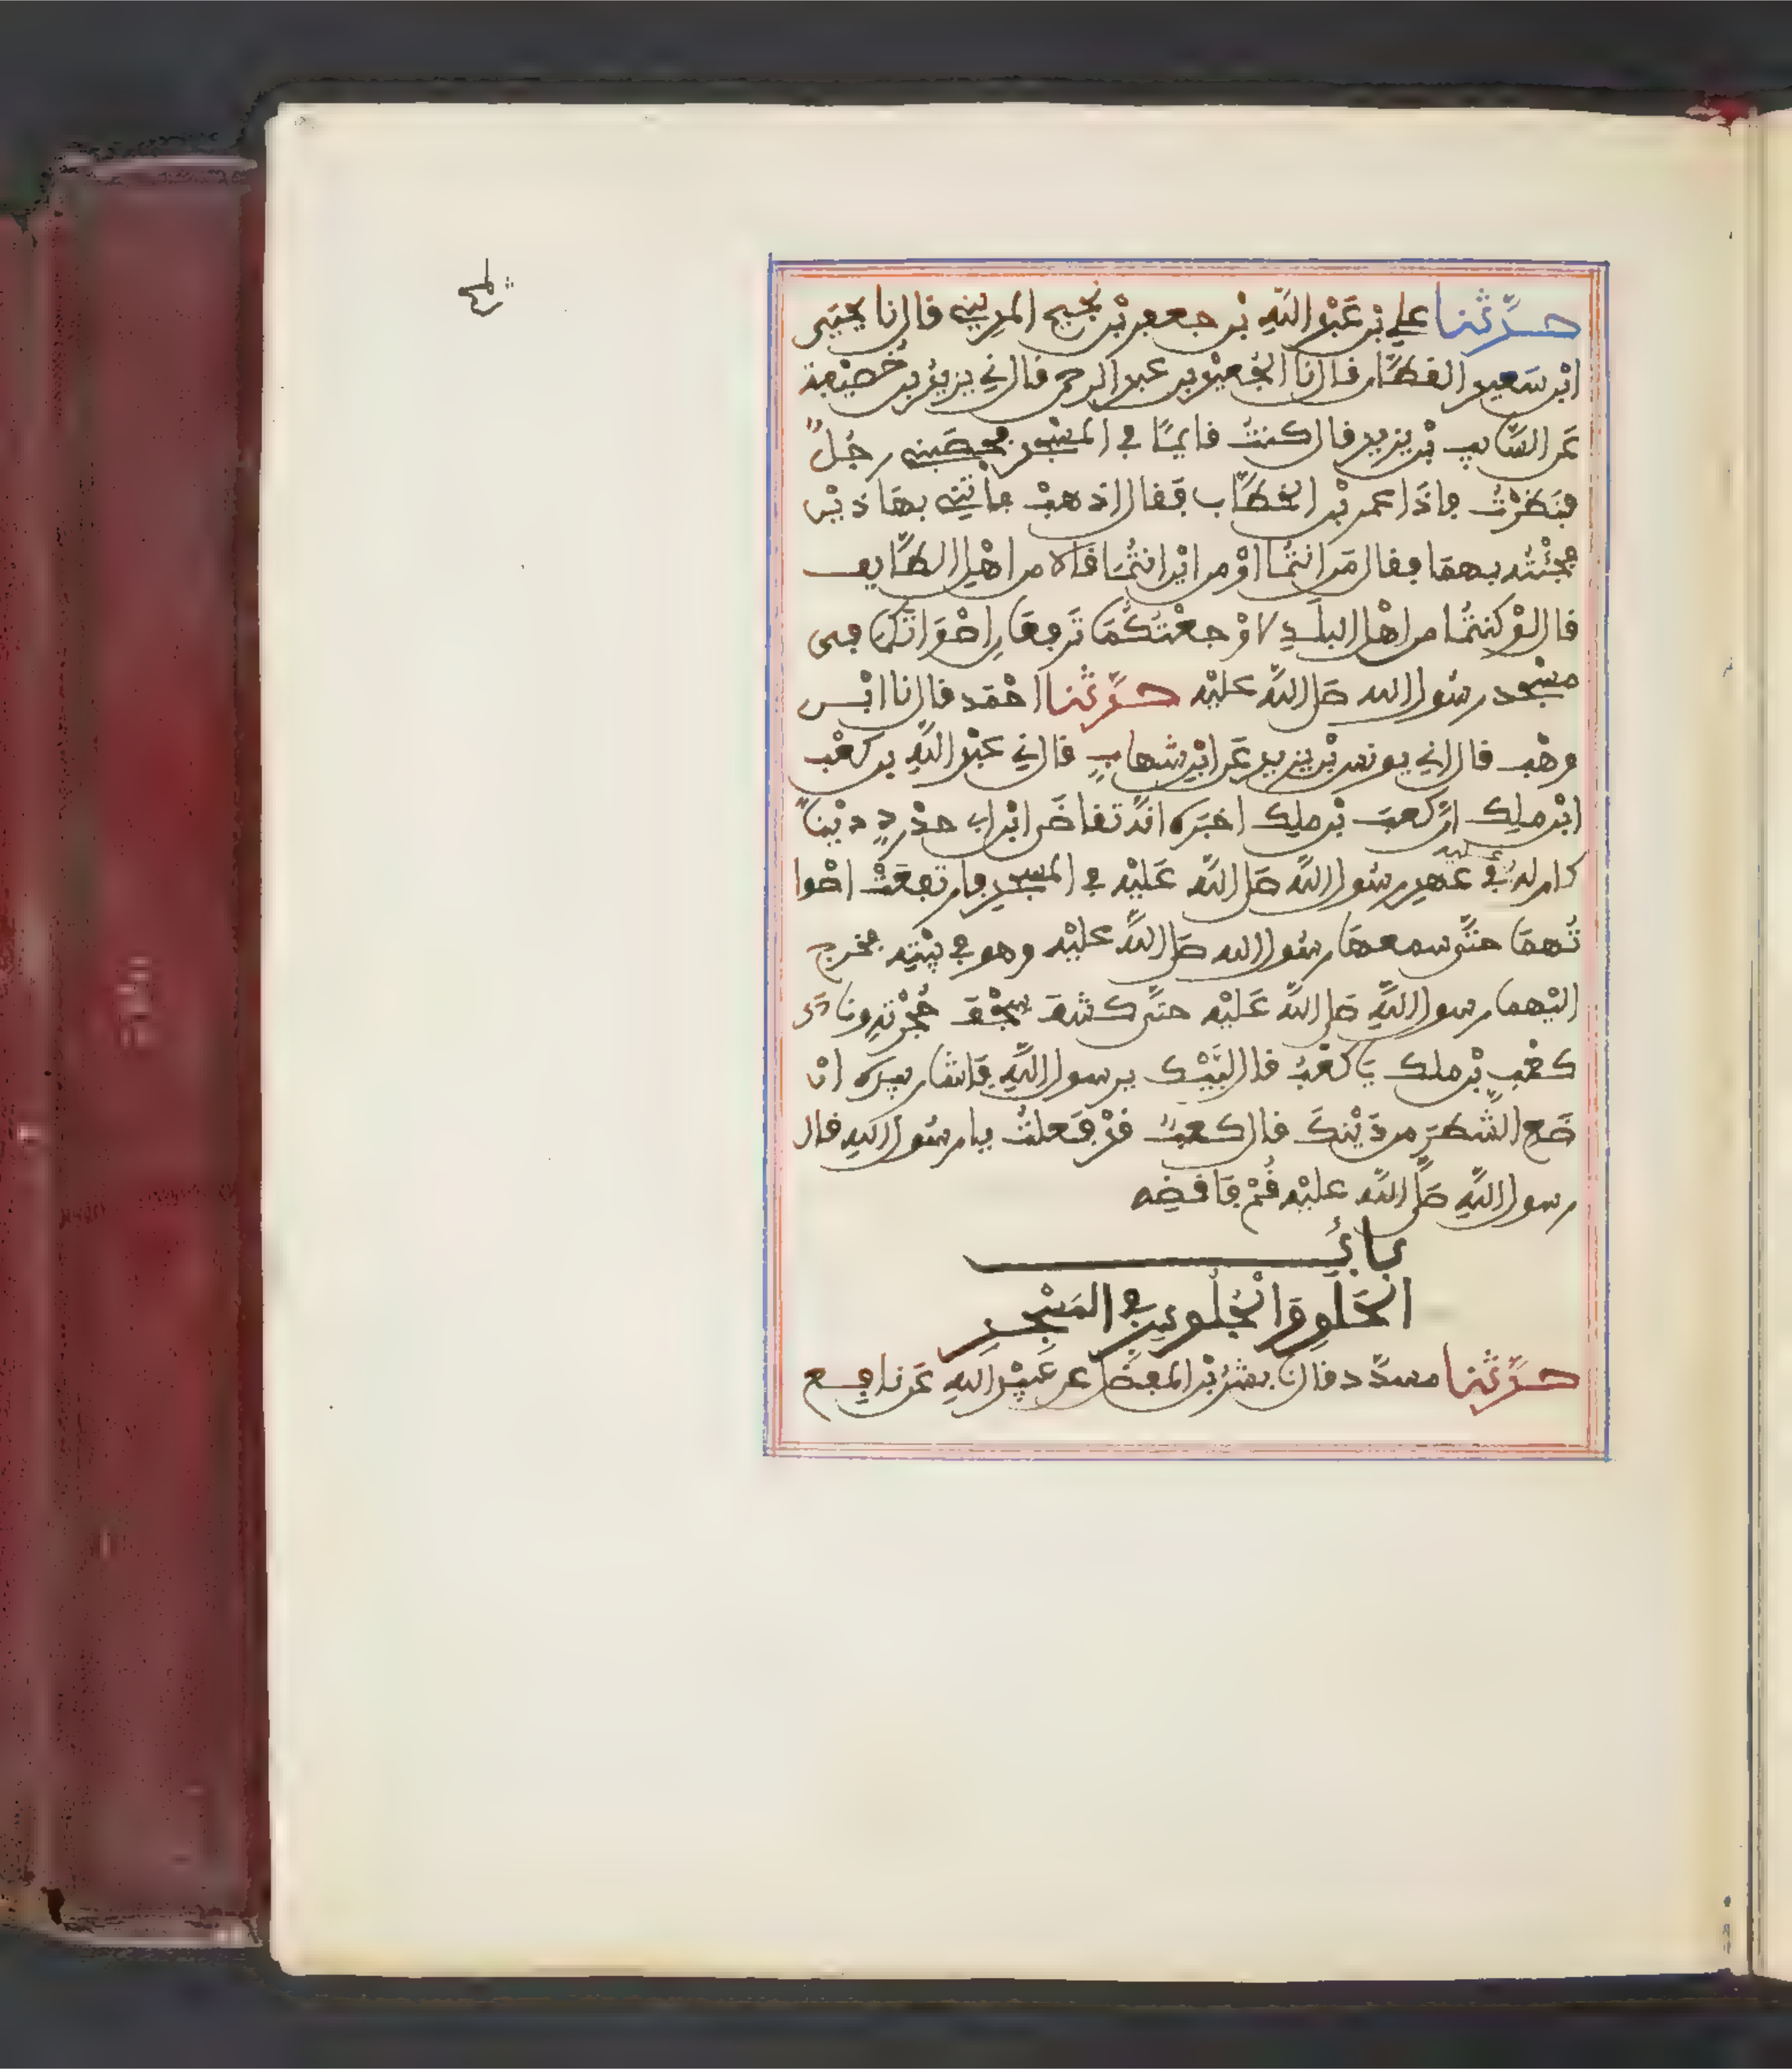 حدّثنا علي بن عَبْد اللّهِ بْن جعفر بْن نَجيح المديني قال نا يحيى
ابْن سَعيد القطّان قال نا الجُعيْد بن عبد الرحمن قال ني يزيدُ بن خُصَيْفة
عَن السَّايب بْن يزيد قال كنتُ قايمًا في المسْجد فحصَبني رجُلٌ
فنَظرْتُ فإذا عمر بْن الخطّاب فقال اذهبْ فأتني بهاذيْن
فجئْتُه بهمَا فقال مَن انتُما اوْ من ايْن انتُمَا قالا من اهْل الطّايف
قال لوْ كنتُما من اهْل البلَدِ لاوْجعْتُكُمَا تَرفعَانِ اصْوَاتَكما في
مسْجد رسُول الله صلى اللّهُ عليْه حدّثنا احْمَد قال نا ابْن
وهْب قال اني يونس بْن يزيد عَن ابْن شهابٍ قال ني عبْد اللّهِ بن كعْب
ابْن ملِك انّ كعبَ بْن ملِك اخبَره انّه تقاضَى ابْن ابي حدْردٍ ديْنًا
كان له عليه في عهد رسُول اللّه صَلى اللّهُ عَليْه في المسجدِ فارتفعَتْ اصْوا
تُهمَا حتّى سمعهَا رسُول الله صَلى اللّهُ عليْه وهو في بيْتِه فخرج
اليْهما رسول اللّهِ صَلى اللّهُ عَليْه حتّى كشفَ سِجْفَ حُجْرتِه ونادَى
كعْب بْن ملك يَا كعْبُ قال لبَّيْك يرسول اللّهِ فَاشار بيده انْ
ضَعِ الشّطرَ من دَيْنِكَ قال كعبٌ قدْ فَعلتُ يا رسُول اللهِ قال
رسول اللّهِ صَلى اللّهُ عليْه قُمْ فَاقضِه
بابُ
الحَلَقِ وَالجُلوسِ في المَسْجدِ
حدّثنا مسدّد قال نا بشرُ بْن المفضّل عن عُبيْد اللهِ عَن نافع